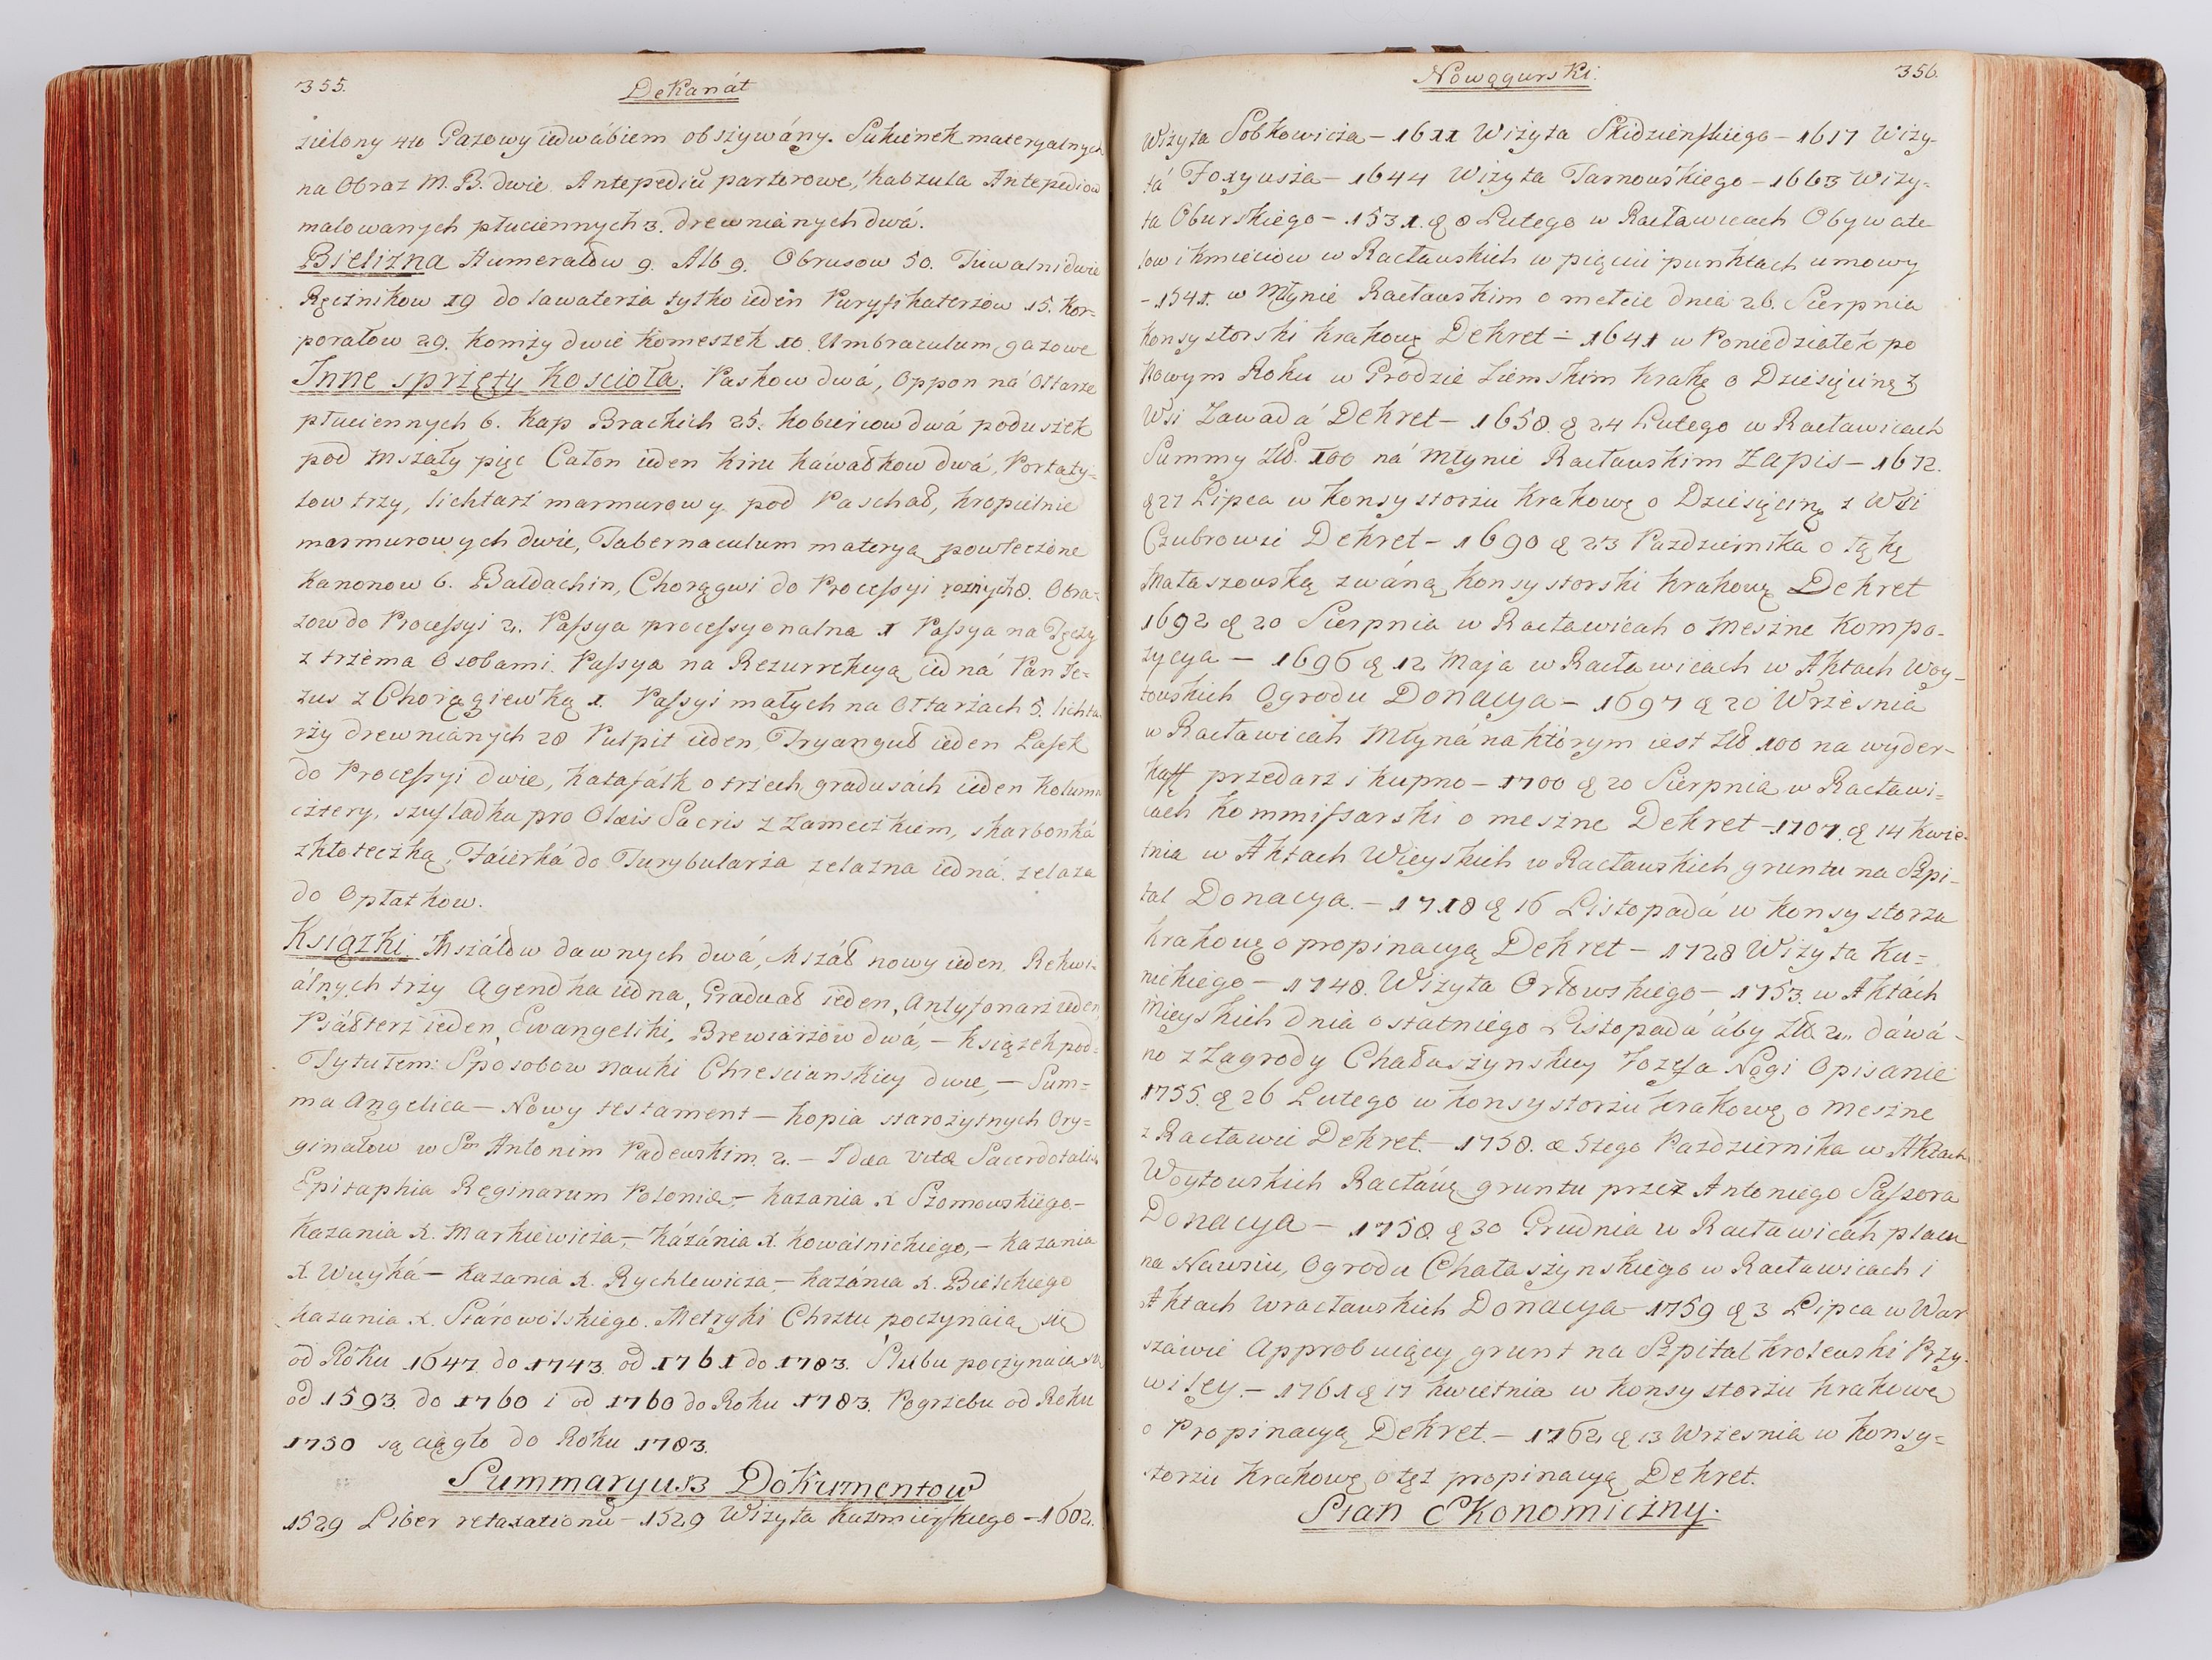 355.
Dekanát
zielony 4to Gazowy iedwábiem obszywány. Sukienek materyalnych
na Obraz M. B. dwie Antepediu parterowe, kabzula Antepediow
malowanych płuciennych 3. drewniánych dwá.
Bielizna Humerałow 9. Alb 9. Obrusow 50. Tuwalni dwie
Ręcżnikow 19 do lawaterża tylko ieden Puryfikaterżow 15. Kor=
porałow 29. Komży dwie Komeszek 10. Umbraculum gazowe
Inne sprzęty Koscioła. Paskow dwá, Oppon ná Ołtarze
płuciennych 6. Kap Brackich 25. Kobiercow dwá poduszek
pod Mszały pięc Całon ieden Kiru káwałkow dwá, Portaty=
low trzy, lichtarż marmurowy pod Paschał, Kropielnie
marmurowych dwie, Tabernaculum materyą powleczone
Kanonow 6. Baldachin, Chorągwi do Processyi rożnych 8. Obra=
zow do Processyi 2. Passya processyonalna 1 Passya na Tęczy
z trzema Osobami. Passya na Rezurrekcyą iedná Pan Je=
zus z Chorągiewką 1. Passyi małych na Ołtarżach 5. lichta
rży drewnianych 28 Pulpit ieden, Tryanguł ieden Lasek
do Processyi dwie, Katafálk o trżech gradusách ieden Kolumn
cżtery, szufladka pro Oleis Sacris z Zamecżkiem, skarbonká
z kłotecżką, Fáierká do Turybularża zelazna iedná. zelaza
do Opłatkow.
Książki. Mszáłow dawnych dwá, Mszáł nowy ieden, Rekwi=
álnych trży Agendka iedna, Graduał ieden, Antyfonarż ieden
Psáłterż ieden, Ewangeliki, Brewiarżow dwá, – Książek pod=
Tytułem: Sposobow nauki Chrescianskiey dwie, – Sum=
ma Angelica – Nowy testament – Kopia starożytnych Ory=
ginałow w Sm Antonim Padewskim. 2. – Idæa vitæ Sacerdotalis
Epitaphia Reginarum Poloniæ, – kazania X Szomowskiego –
Kazania X. Markiewicża, – Kázánia X. Kowálnickiego, – Kazania
X Wuyká – Kazania X. Rychlewicza, – kazánia X. Bielckiego
Kazania X. Stárowolskiego. Metryki Chrztu poczynaią się
od Roku 1647 do 1743. od 1761 do 1783. Slubu poczynaią się
od 1593. do 1760 i od 1760 do Roku 1783. Pogrzebu od Roku
1750 są ciągło do Roku 1783.
Summaryusz Dokumentow
1529 Liber retaxationu – 1529 Wizyta Kazmierskiego – 1602.
Nowogurski.
356.
Wizyta Sobkowicża – 1611 Wiżyta Skidzienskiego – 1617 Wizy-
tá Foxyusża – 1644 Wizyta Tarnowskiego – 1663 Wizy=
ta Oburskiego – 1531. d 8 Lutego w Racławicach Obywate
low i kmieciow w Racławskich w pięciu punktach umowy
– 1541. w Młynie Racławskim o melcie dnia 26. Sierpnia
Konsystorski Krakowę Dekret – 1641 w Poniedziałek po
Nowym Roku w Grodzie Ziemskim Krakę o Dziesięcinę z
Wsi Zawadá Dekret – 1658. d 24 Lutego w Racławicach
Summy Zł. 100 ná Młynie Racławskim Zapis – 1672.
d 27 Lipca w Konsystorżu Krakowę o Dziesięcinę z Wsi
Czubrowie Dekret – 1690 d 23 Pazdziernika o łąkę
Mataszowską zwáną Konsystorski Krakowę Dekret
1692 d 20 Sierpnia w Racławicach o Meszne Kompo-
zycya – 1696 d 12 Maja w Racławicach w Aktach Woy-
towskich Ogrodu Donacya – 1697 d 20 Wrżesnia
w Racławicah Młyná na którym iest Zł 100 na wyder-
kaff przedarż i kupno – 1700 d 20 Sierpnia w Racławi=
cach Kommissarski o meszne Dekret – 1707. d 14 Kwie-
tnia w Aktach Wieyskich w Racławskich gruntu na Szpi-
tal Donacya. – 1718 d 16 Listopadá w Konsystorżu
Krakowę o propinacyą Dekret – 1728 Wiżyta Ku=
nickiego – 1748. Wizyta Orłowskiego – 1753. w Aktách
Mieyskich dnia ostatniego Listopadá áby Zł. 2. dáwá-
no z Zagrody Chałaszynskiey Jozefa Nogi Opisanie
1755. d 26 Lutego w Konsystorżu Krakowę o meszne
z Racławic Dekret. – 1758. d 5tego Pazdziernika w Aktach
Woytowskich Racłáwę gruntu przez Antoniego Passora
Donacya – 1758. d 30 Grudnia w Racławicah placu
na Nawsiu, Ogrodu Chałaszynskiego w Racławicach i
Aktach w racławskich Donacya – 1759 d 3 Lipca w War
szawie Approbuiący grunt na Szpital Krolewski Przy-
wiley. – 1761 d 17 Kwietnia w Konsystorżu Krakowę
o Propinacyą Dekret. – 1762 d 13 Wrżesnia w Konsy=
storżu Krakowę o tęż propinacyą Dekret.
Stan Ekonomicżny.